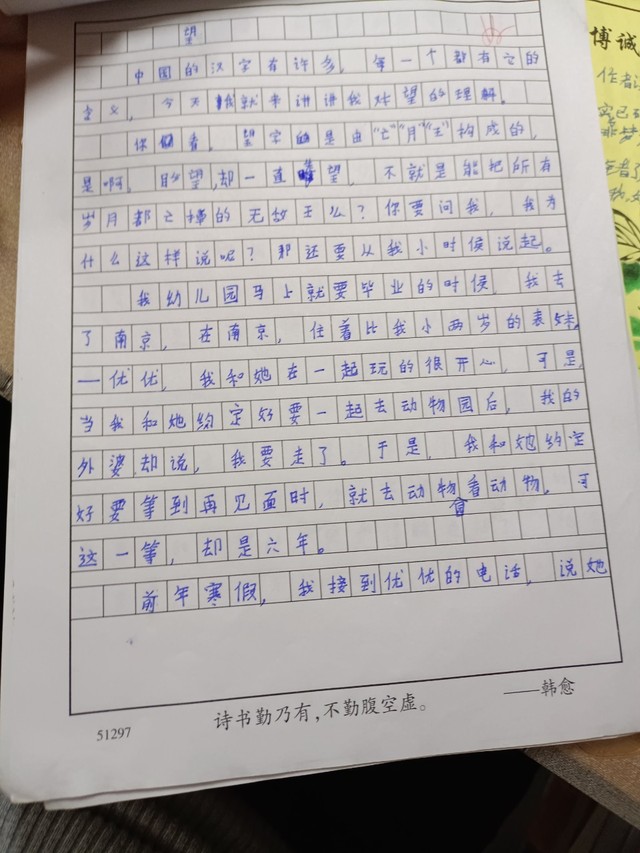 望
中国的汉字有许多，每一个都有它的
含义，今天我就来讲讲我对望的理解。
你看，望字的是由“亡”“月”“王”构成的，
是啊，盼望，却一直望，不就是能把所有
岁月都亡掉的无敌王么？你要问我，我为
什么这样说呢？那还要从我小时侯说起。
我幼儿园马上就要毕业的时侯，我去
了南京，在南京，住着比我小两岁的表妹，
—优优，我和她在一起玩的很开心，可是，
当我和她约定好要一起去动物园后，我的
外婆却说，我要走了。于是，我和她约定
好要等到再见面时，就去动物看动物。可
这一等，却是六年。
前年寒假，我接到优优的电话，说她
51297
诗书勤乃有，不勤腹空虚。
——韩愈
博诚